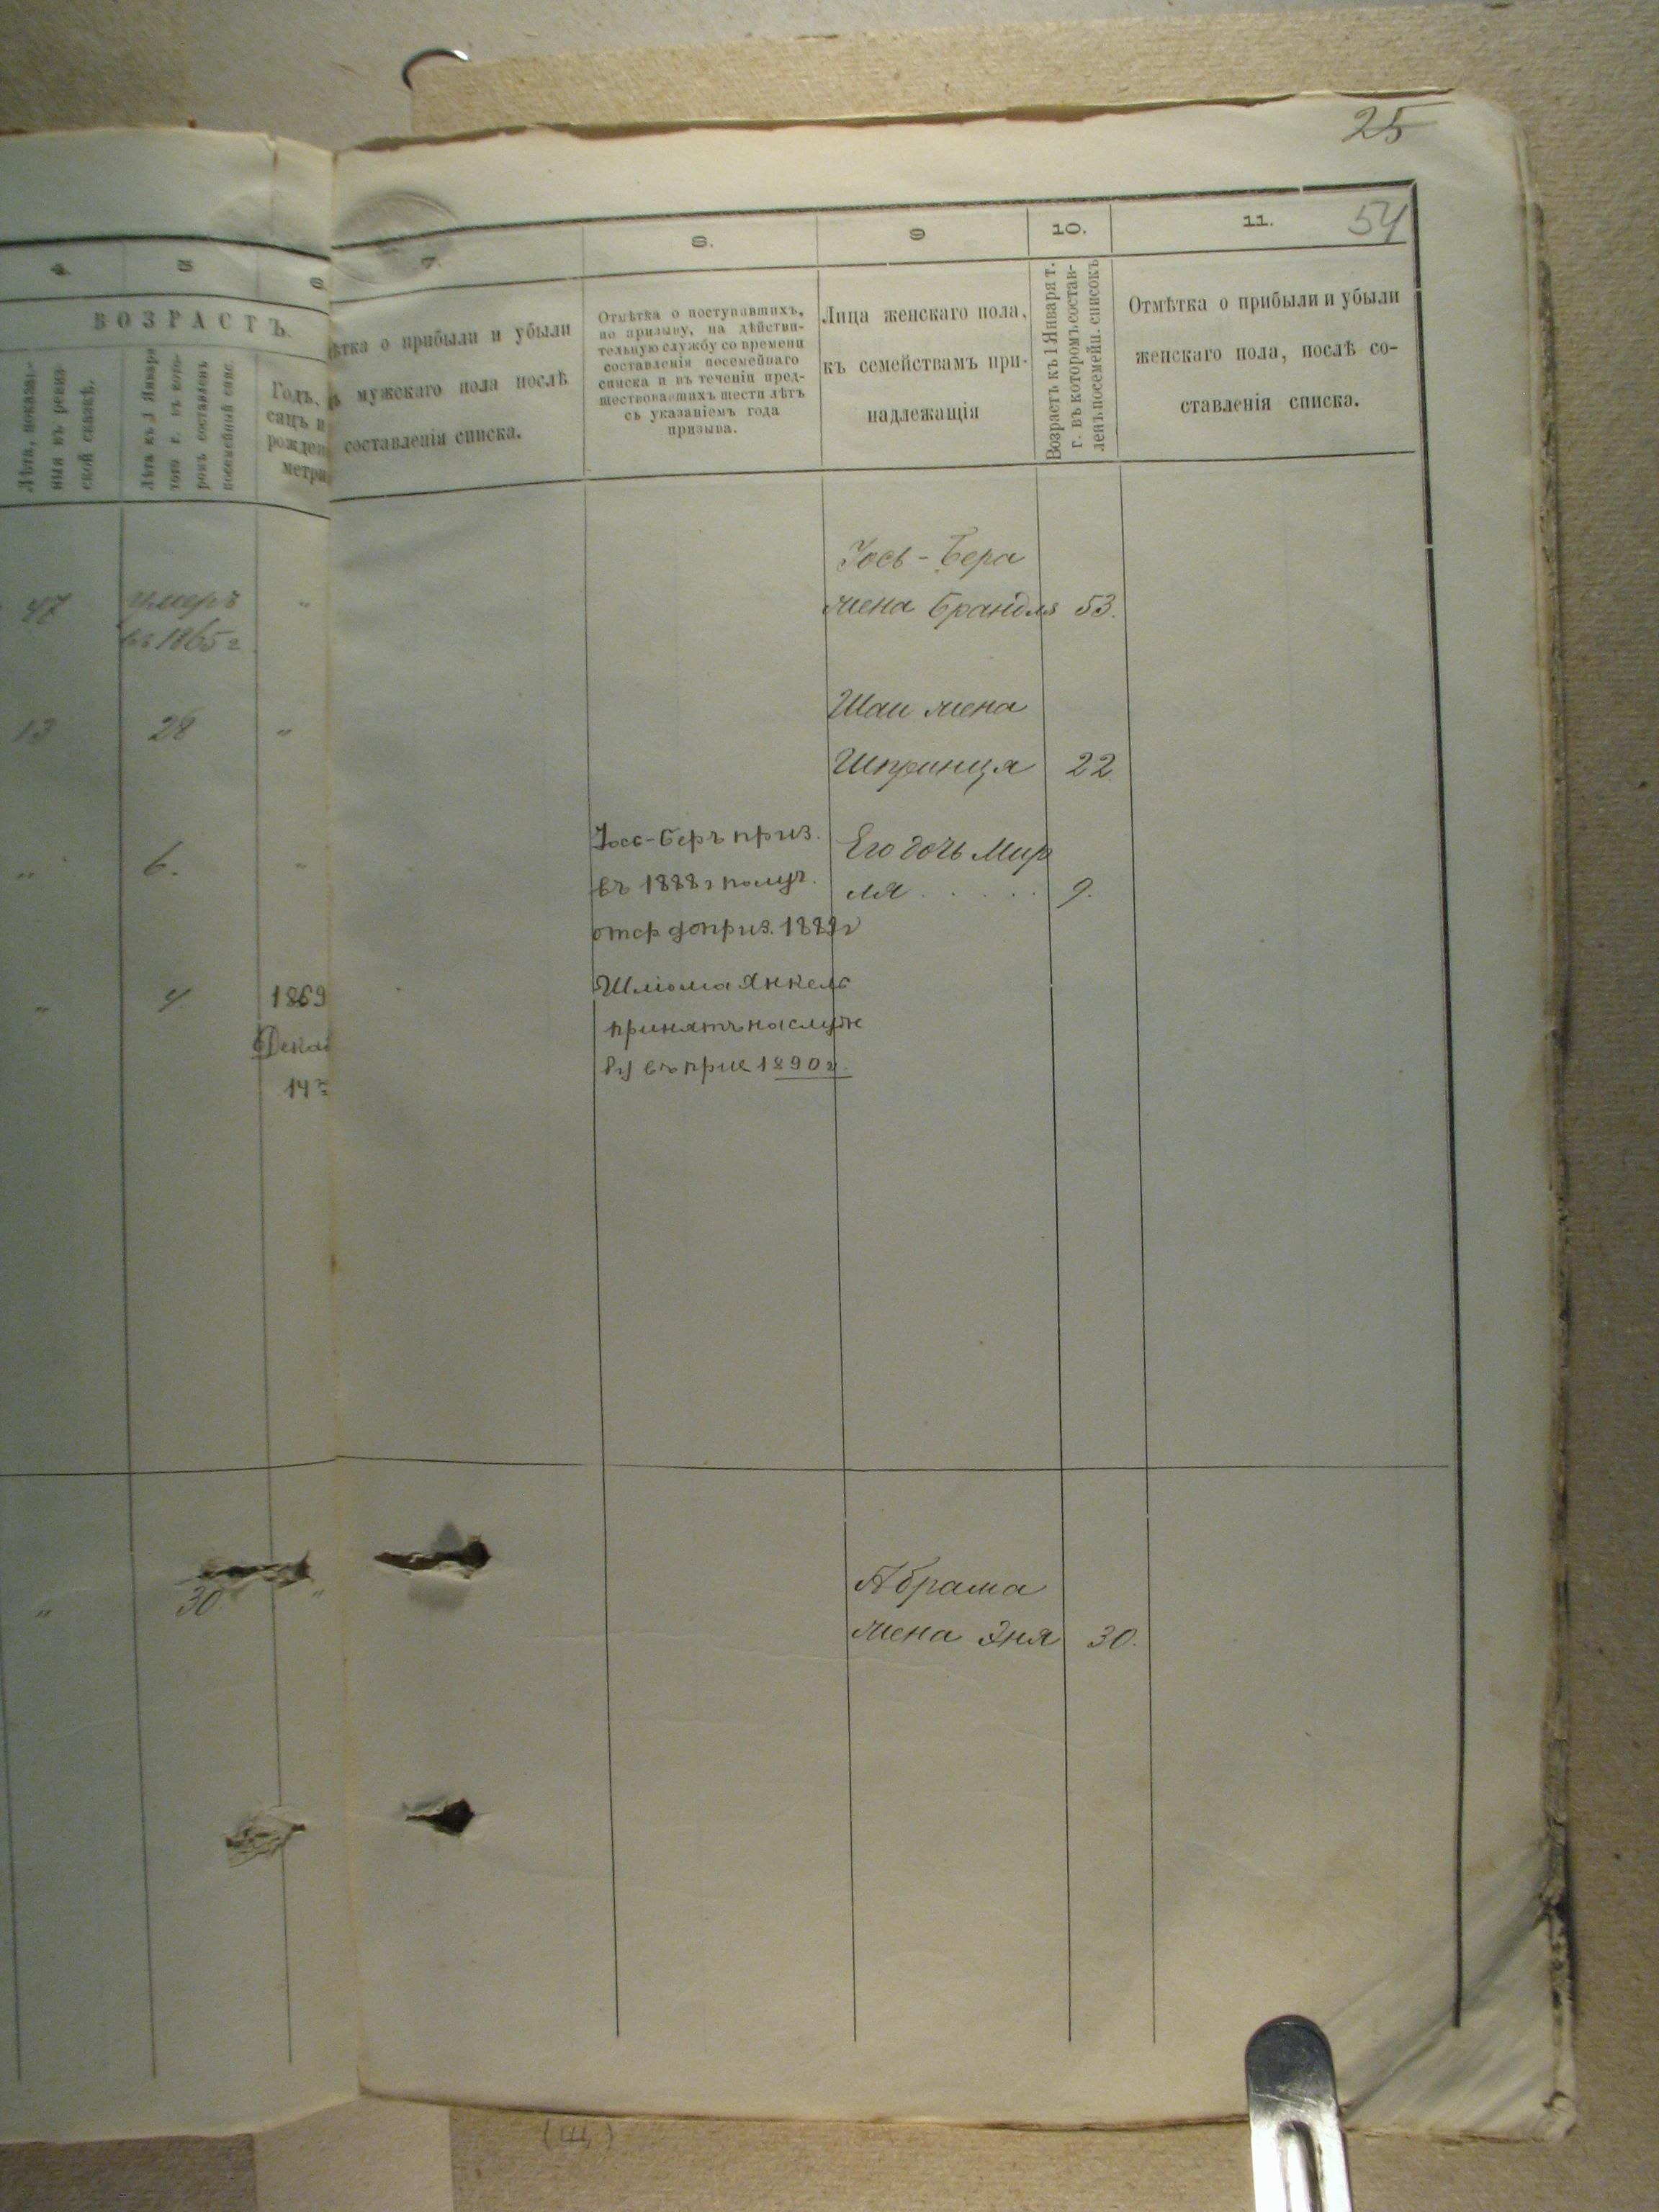 25
54
4.
5
6
7.
8.
9
10.
11.
ВОЗРАСТЪ.
Лѣта, показан-
ныя въ ревиз-
ской сказкѣ.
Лѣта къ 1 Января
того г. въ кото-
ромъ составленъ
посемейный спис.
Годъ,
сяцъ и
рожден
метри
ѣтка о прибыли и убыли
мужскаго пола послѣ
составленія списка.
Отмѣтка о поступавшихъ,
по призыву, на дѣйстви-
тельную службу со времени
составленія посемейнаго
списка и въ теченіи пред-
шествовавшихъ шести лѣтъ
съ указаніемъ года
призыва.
Лица женскаго пола,
къ семействамъ при-
надлежащія
Возрастъ къ 1 Января т.
г. въ которомъ состав-
ленъ посемейн. списокъ
Отмѣтка о прибыли и убыли
женскаго пола, послѣ со-
ставленія списка.
47 умеръ "
въ 1865 г.
Іось-Бера
жена Брандля 53.
13 28 "
Шаи жена
Шпринца 22
" 6. "
Іос-Беръ приз.
въ 1888 г получ.
отср до приз. 1889 г
Его дочь Мир
ля . . . . . 9.
" 4. 1869
Декаб
14
Шліома Янкель
принятъ на служ
бу въ приз 1890 г.
" 30 "
Абрама
жена Эня 30.
(Щ)